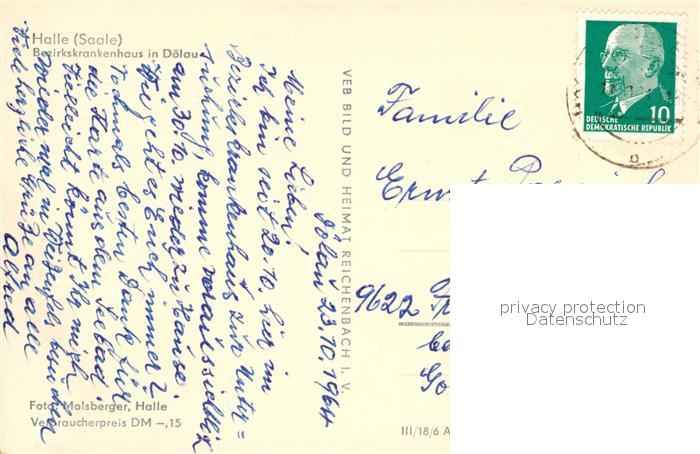 Halle (Saale)
Bezirkskrankenhaus in Dölau
Dölau 23.10.1964
Meine Lieben!
Ich bin seit 20.10. hier im
Bezirkskrankenhaus zur Unter=
suchung, komme voraussichtlich
am 30.10. wieder zu Hause.
Wie geht es Euch immer?
Nochmals besten Dank für
die Karte aus dem Seebad.
Vielleicht könnt Ihr mich
wieder mal in Weißenfels besuchen
Viele herzliche Grüße an alle
Alfred
Foto: Molsberger, Halle
Verbraucherpreis DM –,15
VEB BILD UND HEIMAT REICHENBACH I. V.
III/18/6 A
10
DEUTSCHE
DEMOKRATISCHE REPUBLIK
Familie
Ernst
9622
privacy protection
Datenschutz